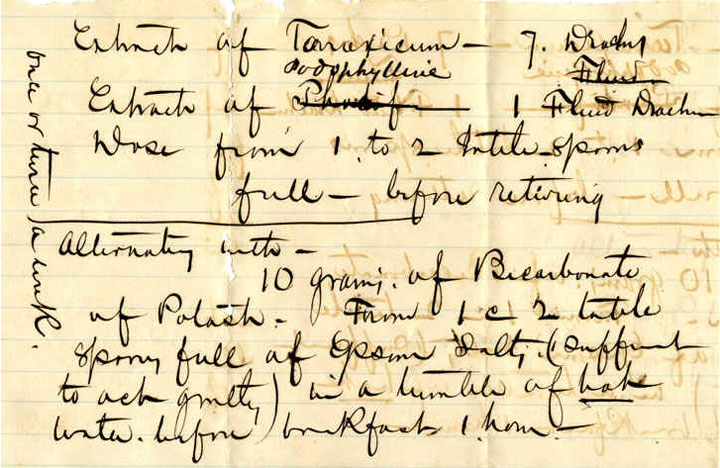 Extract of Taraxicum — 7. Drachms
podophylline Fluid.
Extract of 1 Fluid Drachm
Dose from 1 to 2 table-spoons
full — before retiring
Alternating with —
10 grains. of Bicarbonate
of Potash — From 1 2 table
spoons full of Epsom Salts. (sufficient
to act gently) in a tumbler of hot
water. before breakfast 1. hour. —
once or twice a week.